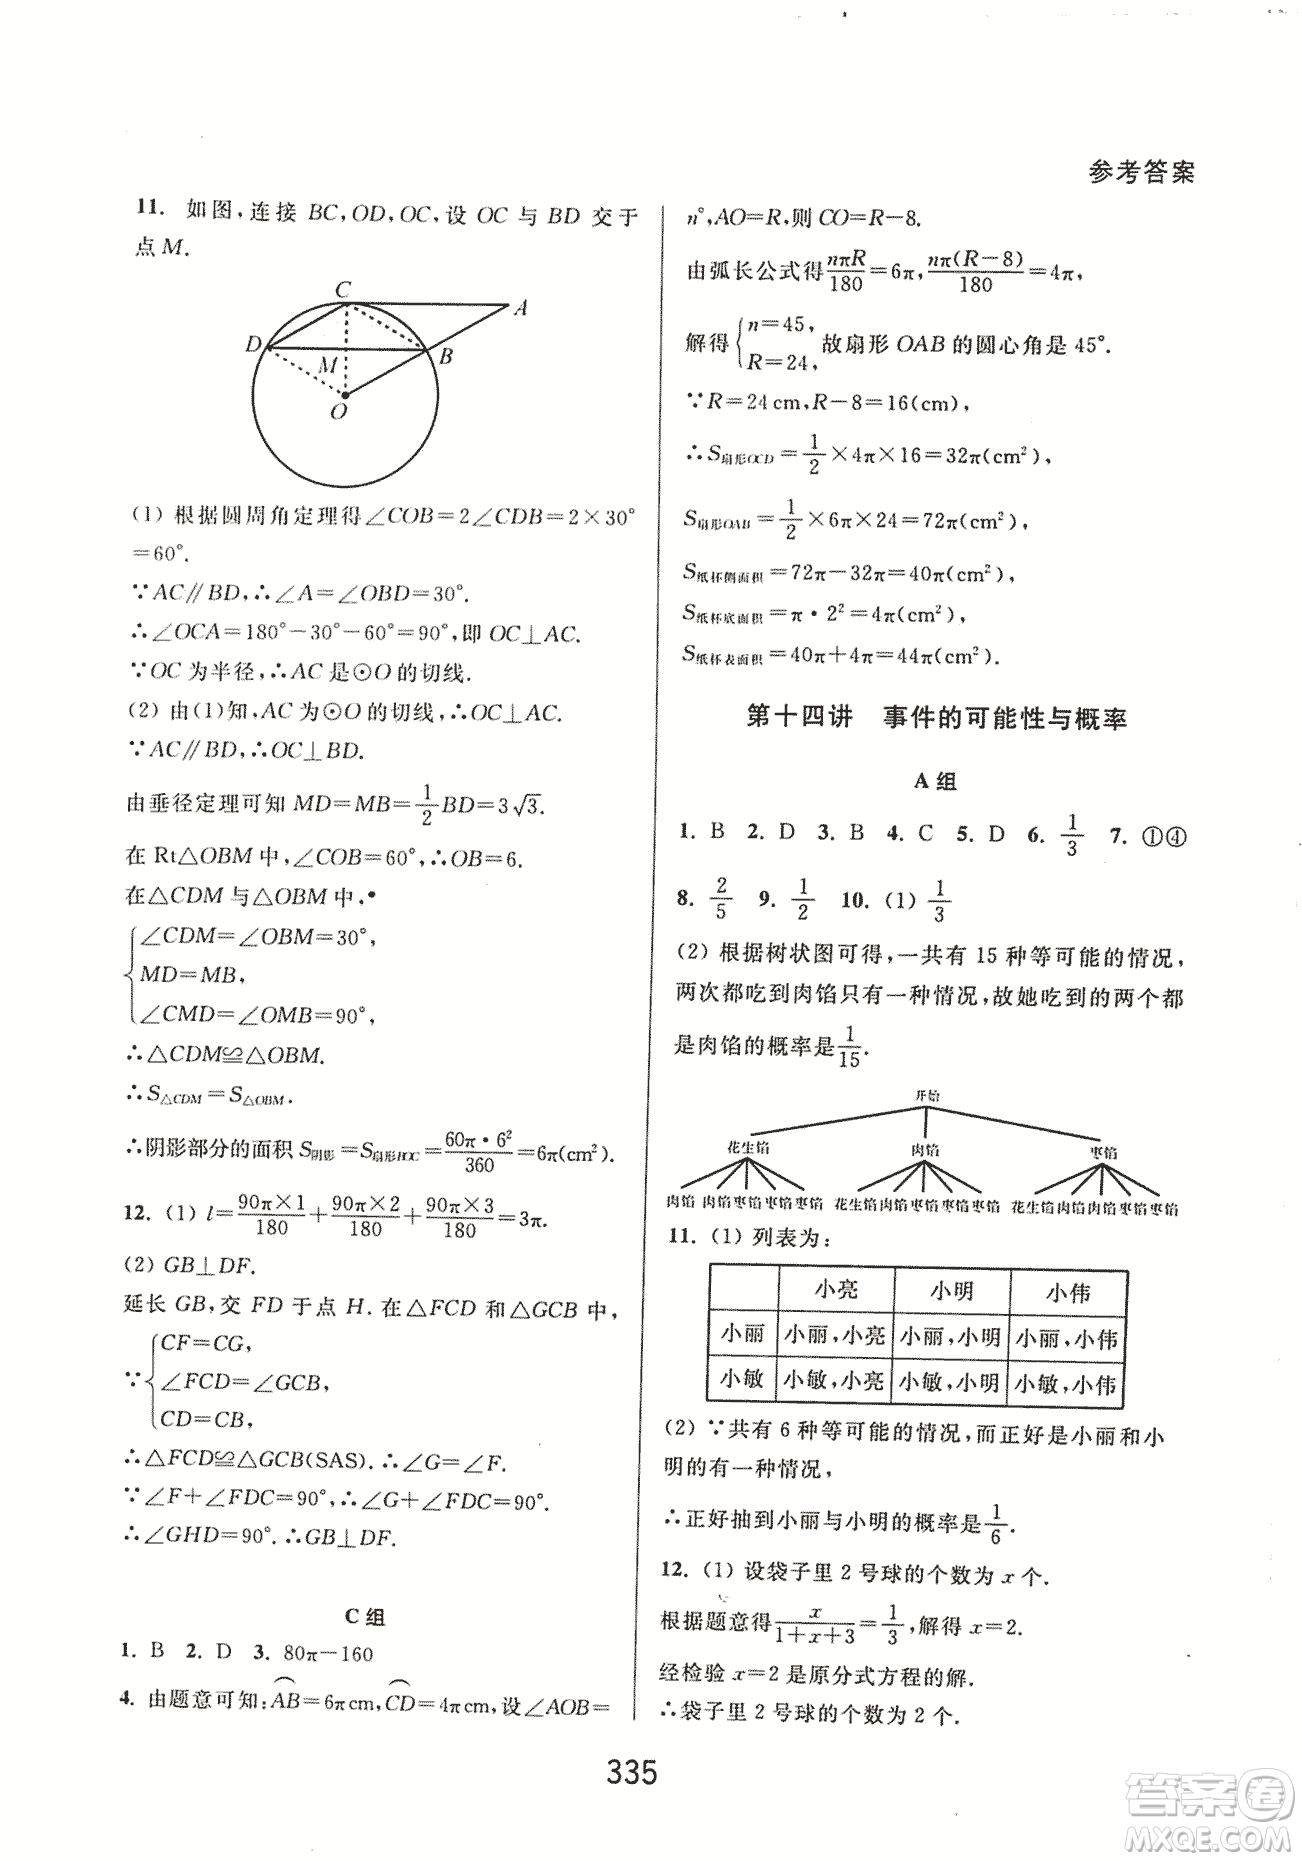 参考答案
11. 如图,连接 BC,OD,OC,设 OC 与 BD 交于
点 M.
C
A
D
M
B
O
(1) 根据圆周角定理得∠COB=2∠CDB=2×30°
=60°.
∵AC∥BD,∴∠A=∠OBD=30°.
∴∠OCA=180°-30°-60°=90°,即 OC⊥AC.
∵OC 为半径,∴AC 是⊙O 的切线.
(2) 由(1)知,AC 为⊙O 的切线,∴OC⊥AC.
∵AC∥BD,∴OC⊥BD.
由垂径定理可知 MD=MB=1/2 BD=3√3.
在 Rt△OBM 中,∠COB=60°,∴OB=6.
在△CDM 与△OBM 中,
∠CDM=∠OBM=30°,
MD=MB,
∠CMD=∠OMB=90°,
∴△CDM≌△OBM.
∴S△CDM=S△OBM.
∴阴影部分的面积 S阴影=S扇形BOC=60π·6²/360=6π(cm²).
12. (1) l=90π×1/180+90π×2/180+90π×3/180=3π.
(2) GB⊥DF.
延长 GB,交 FD 于点 H. 在△FCD 和△GCB 中,
CF=CG,
∵ ∠FCD=∠GCB,
CD=CB,
∴△FCD≌△GCB(SAS).∴∠G=∠F.
∵∠F+∠FDC=90°,∴∠G+∠FDC=90°.
∴∠GHD=90°.∴GB⊥DF.
C 组
1. B 2. D 3. 80π-160
4. 由题意可知:AB⌒=6π cm,CD⌒=4π cm,设∠AOB=
n°,AO=R,则 CO=R-8.
由弧长公式得 nπR/180=6π,nπ(R-8)/180=4π,
解得{n=45,
R=24,故扇形 OAB 的圆心角是 45°.
∵R=24 cm,R-8=16(cm),
∴S扇形OCD=1/2×4π×16=32π(cm²),
S扇形OAB=1/2×6π×24=72π(cm²),
S纸杯侧面积=72π-32π=40π(cm²),
S纸杯底面积=π·2²=4π(cm²),
S纸杯表面积=40π+4π=44π(cm²).
第十四讲 事件的可能性与概率
A 组
1. B 2. D 3. B 4. C 5. D 6. 1/3 7. ①④
8. 2/5 9. 1/2 10. (1) 1/3
(2) 根据树状图可得,一共有 15 种等可能的情况,
两次都吃到肉馅只有一种情况,故她吃到的两个都
是肉馅的概率是 1/15.
开始
花生馅 肉馅 枣馅
肉馅 肉馅枣馅枣馅枣馅 花生馅肉馅枣馅枣馅枣馅 花生馅肉馅肉馅枣馅枣馅
11. (1) 列表为:
小亮 小明 小伟
小丽 小丽,小亮 小丽,小明 小丽,小伟
小敏 小敏,小亮 小敏,小明 小敏,小伟
(2) ∵共有 6 种等可能的情况,而正好是小丽和小
明的有一种情况,
∴正好抽到小丽与小明的概率是 1/6.
12. (1) 设袋子里 2 号球的个数为 x 个.
根据题意得 x/(1+x+3)=1/3,解得 x=2.
经检验 x=2 是原分式方程的解.
∴袋子里 2 号球的个数为 2 个.
335
答案卷
MXQE.COM